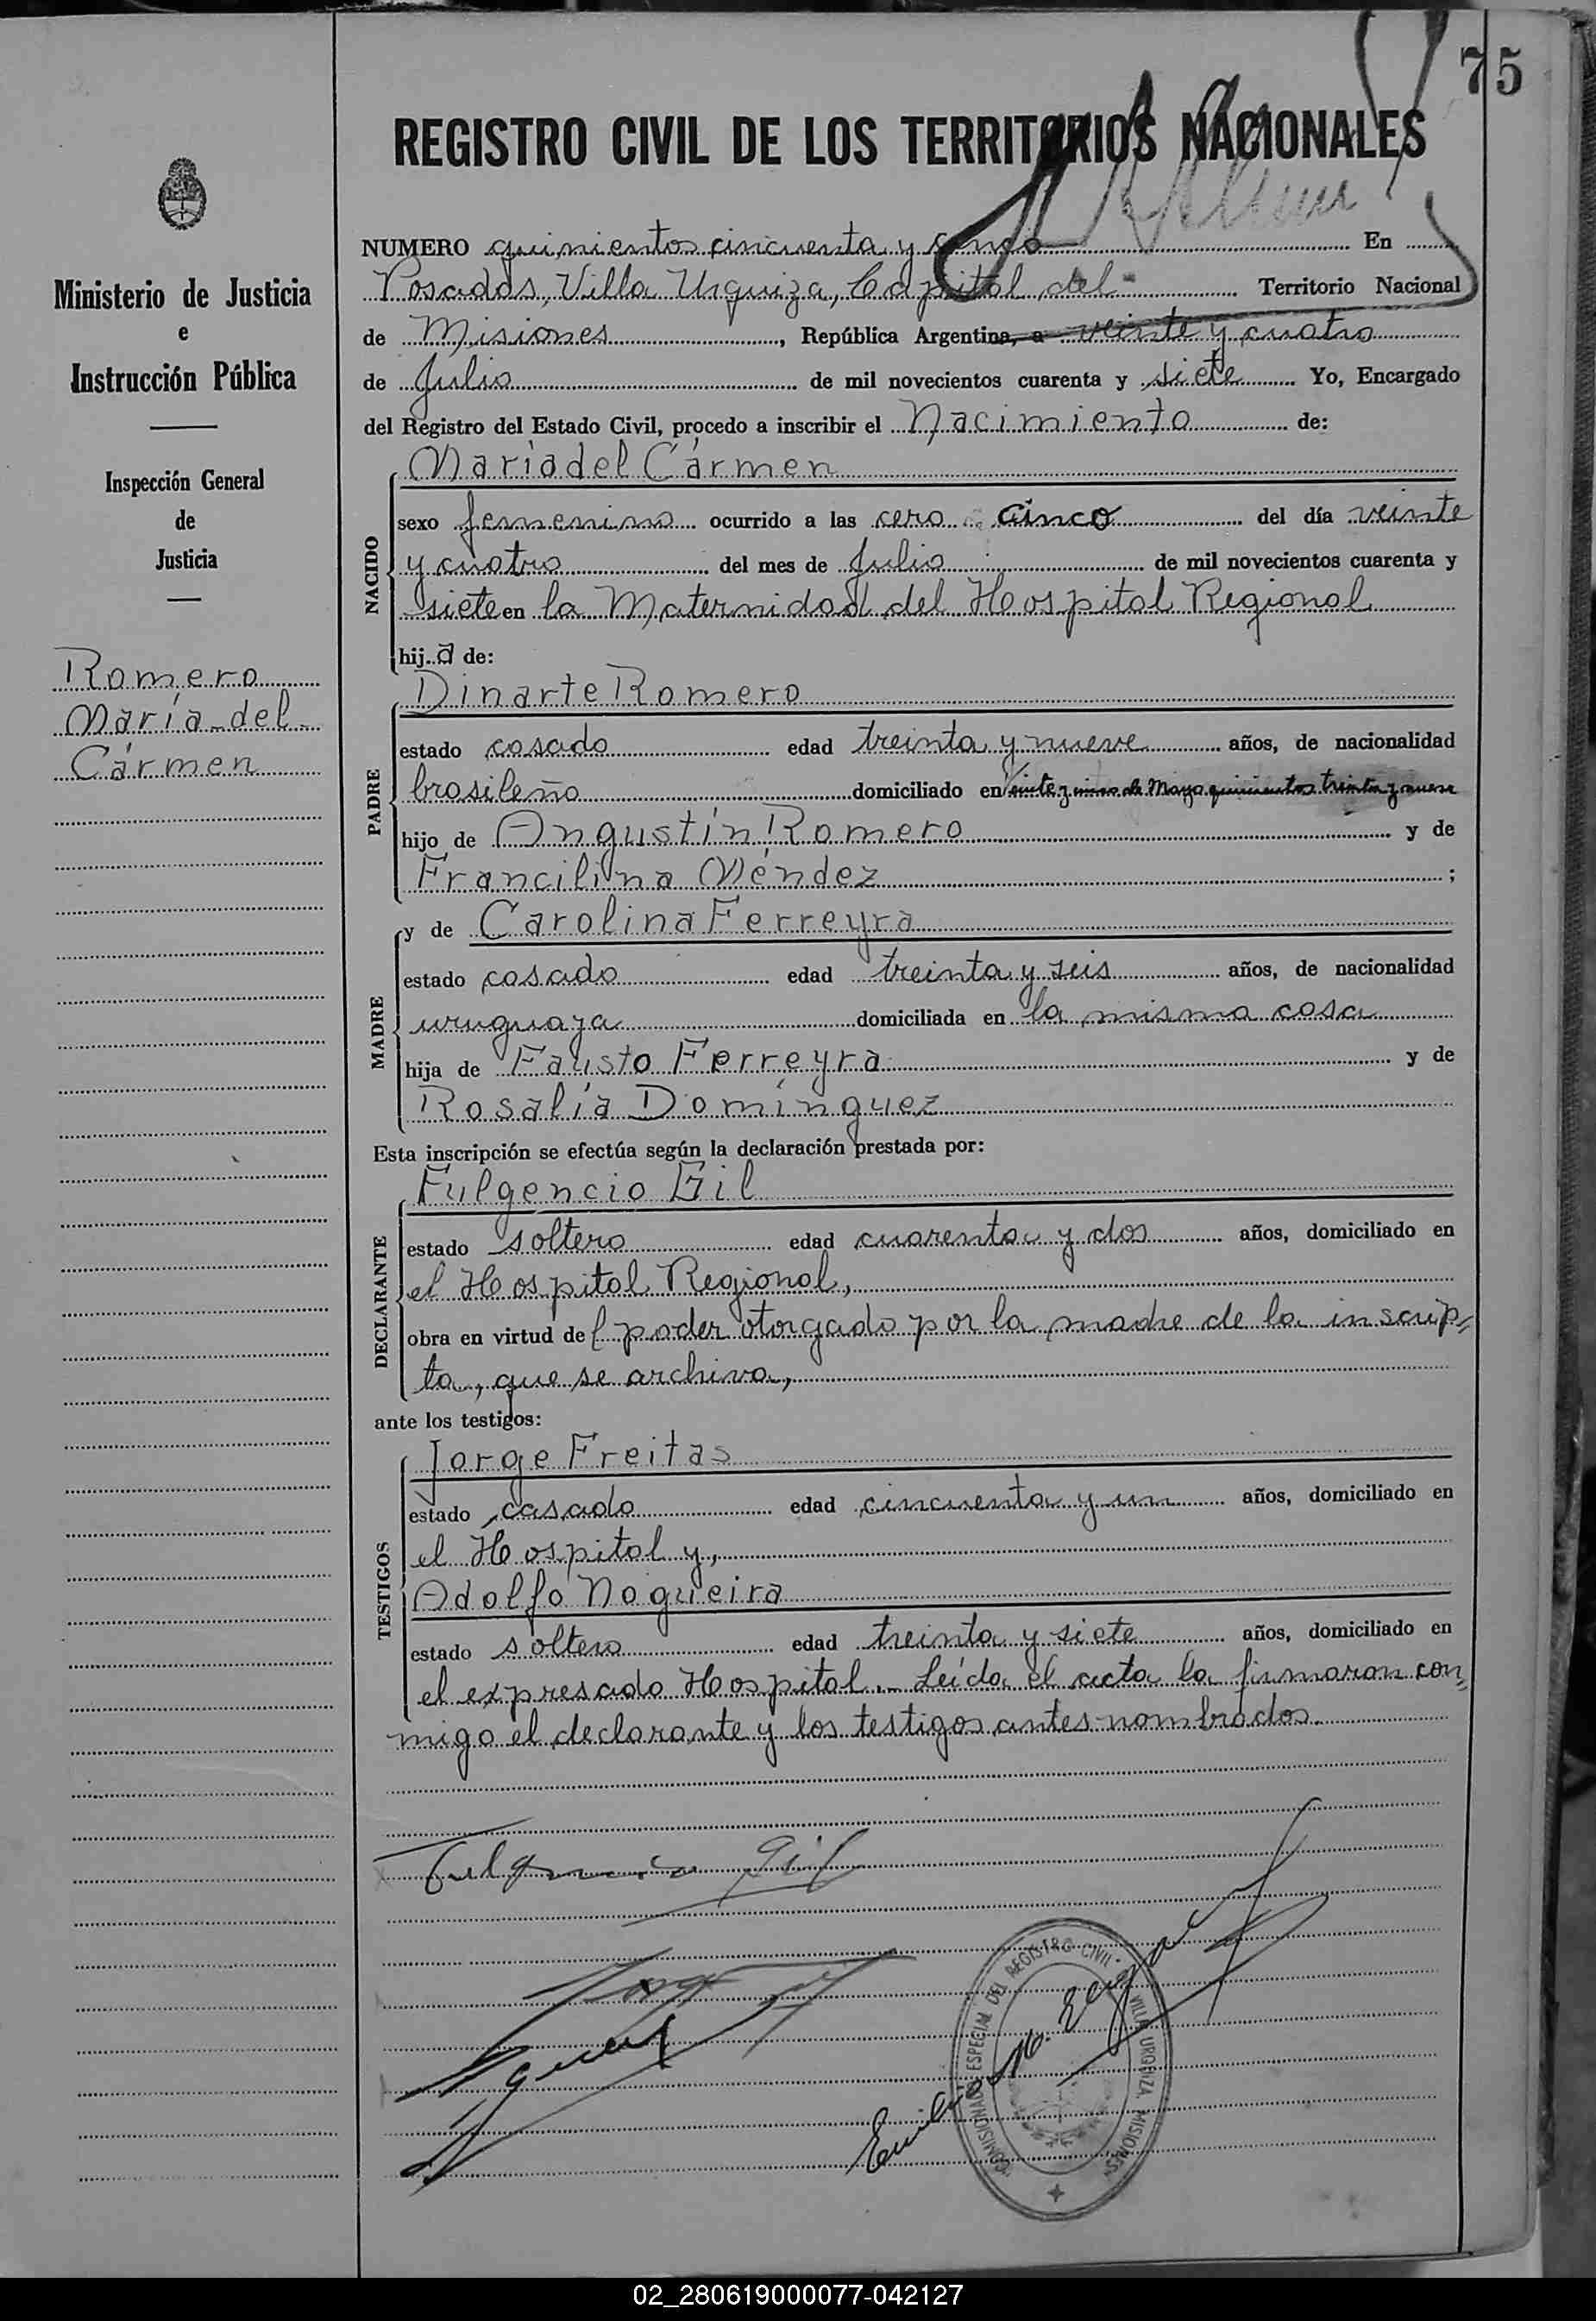 75
REGISTRO CIVIL DE LOS TERRITORIOS NACIONALES
NUMERO quinientos cincuenta y cinco En
Posadas, Villa Urquiza, Capital del Territorio Nacional
de Misiones, República Argentina, a veinte y cuatro
de Julio de mil novecientos cuarenta y siete Yo, Encargado
del Registro del Estado Civil, procedo a inscribir el Nacimiento de:
María del Cármen
NACIDO
sexo femenino ocurrido a las cero cinco del día veinte
y cuatro del mes de Julio de mil novecientos cuarenta y
siete en la Maternidad del Hospital Regional
hija de:
Dinarte Romero
PADRE
estado casado edad treinta y nueve años, de nacionalidad
brasileño domiciliado en veinte y cinco de Mayo quinientos treinta y nueve
hijo de Angustín Romero y de
Francilina Méndez ;
y de Carolina Ferreyra
MADRE
estado casado edad treinta y seis años, de nacionalidad
uruguaya domiciliada en la misma casa
hija de Fausto Ferreyra y de
Rosalía Domínguez
Esta inscripción se efectúa según la declaración prestada por:
Fulgencio Gil
DECLARANTE
estado soltero edad cuarenta y dos años, domiciliado en
el Hospital Regional,
obra en virtud del poder otorgado por la madre de la inscrip=
ta, que se archiva,
ante los testigos:
Jorge Freitas
TESTIGOS
estado casado edad cincuenta y un años, domiciliado en
el Hospital y,
Adolfo Nogueira
estado soltero edad treinta y siete años, domiciliado en
el expresado Hospital.- Leída el acta la firmaron con=
migo el declarante y los testigos antes nombrados.
Fulgencio Gil
COMISIONADO ESPECIAL DEL REGISTRO CIVIL
VILLA URQUIZA MISIONES
Ministerio de Justicia
e
Instrucción Pública
Inspección General
de
Justicia
Romero
María del
Cármen
02_280619000077-042127